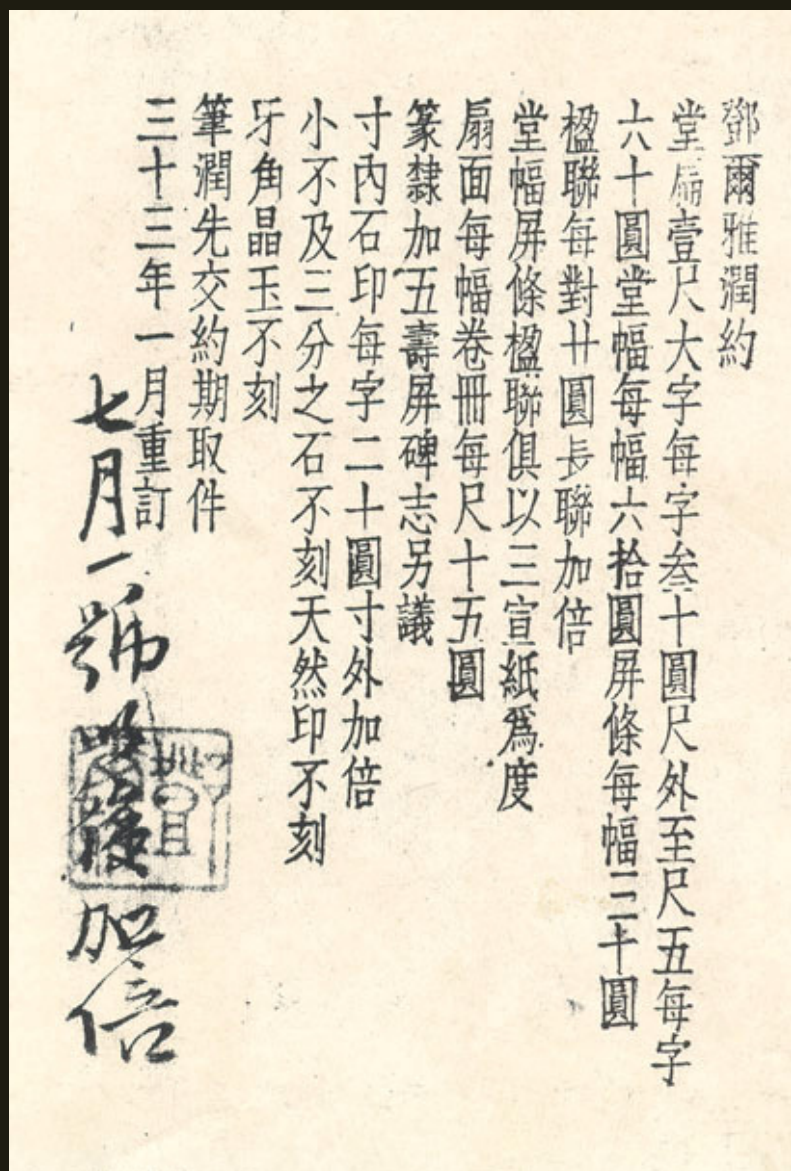 鄧爾雅潤約
堂扁壹尺大字每字叁十圓尺外至尺五每字
六十圓堂幅每幅六拾圓屏條每幅三十圓
楹聯每對廿圓長聯加倍
堂幅屏條楹聯俱以三宣紙爲度
扇面每幅卷冊每尺十五圓
篆隸加五壽屏碑志另議
寸內石印每字二十圓寸外加倍
小不及三分之石不刻天然印不刻
牙角晶玉不刻
筆潤先交約期取件
三十三年一月重訂
七月一號以後加倍